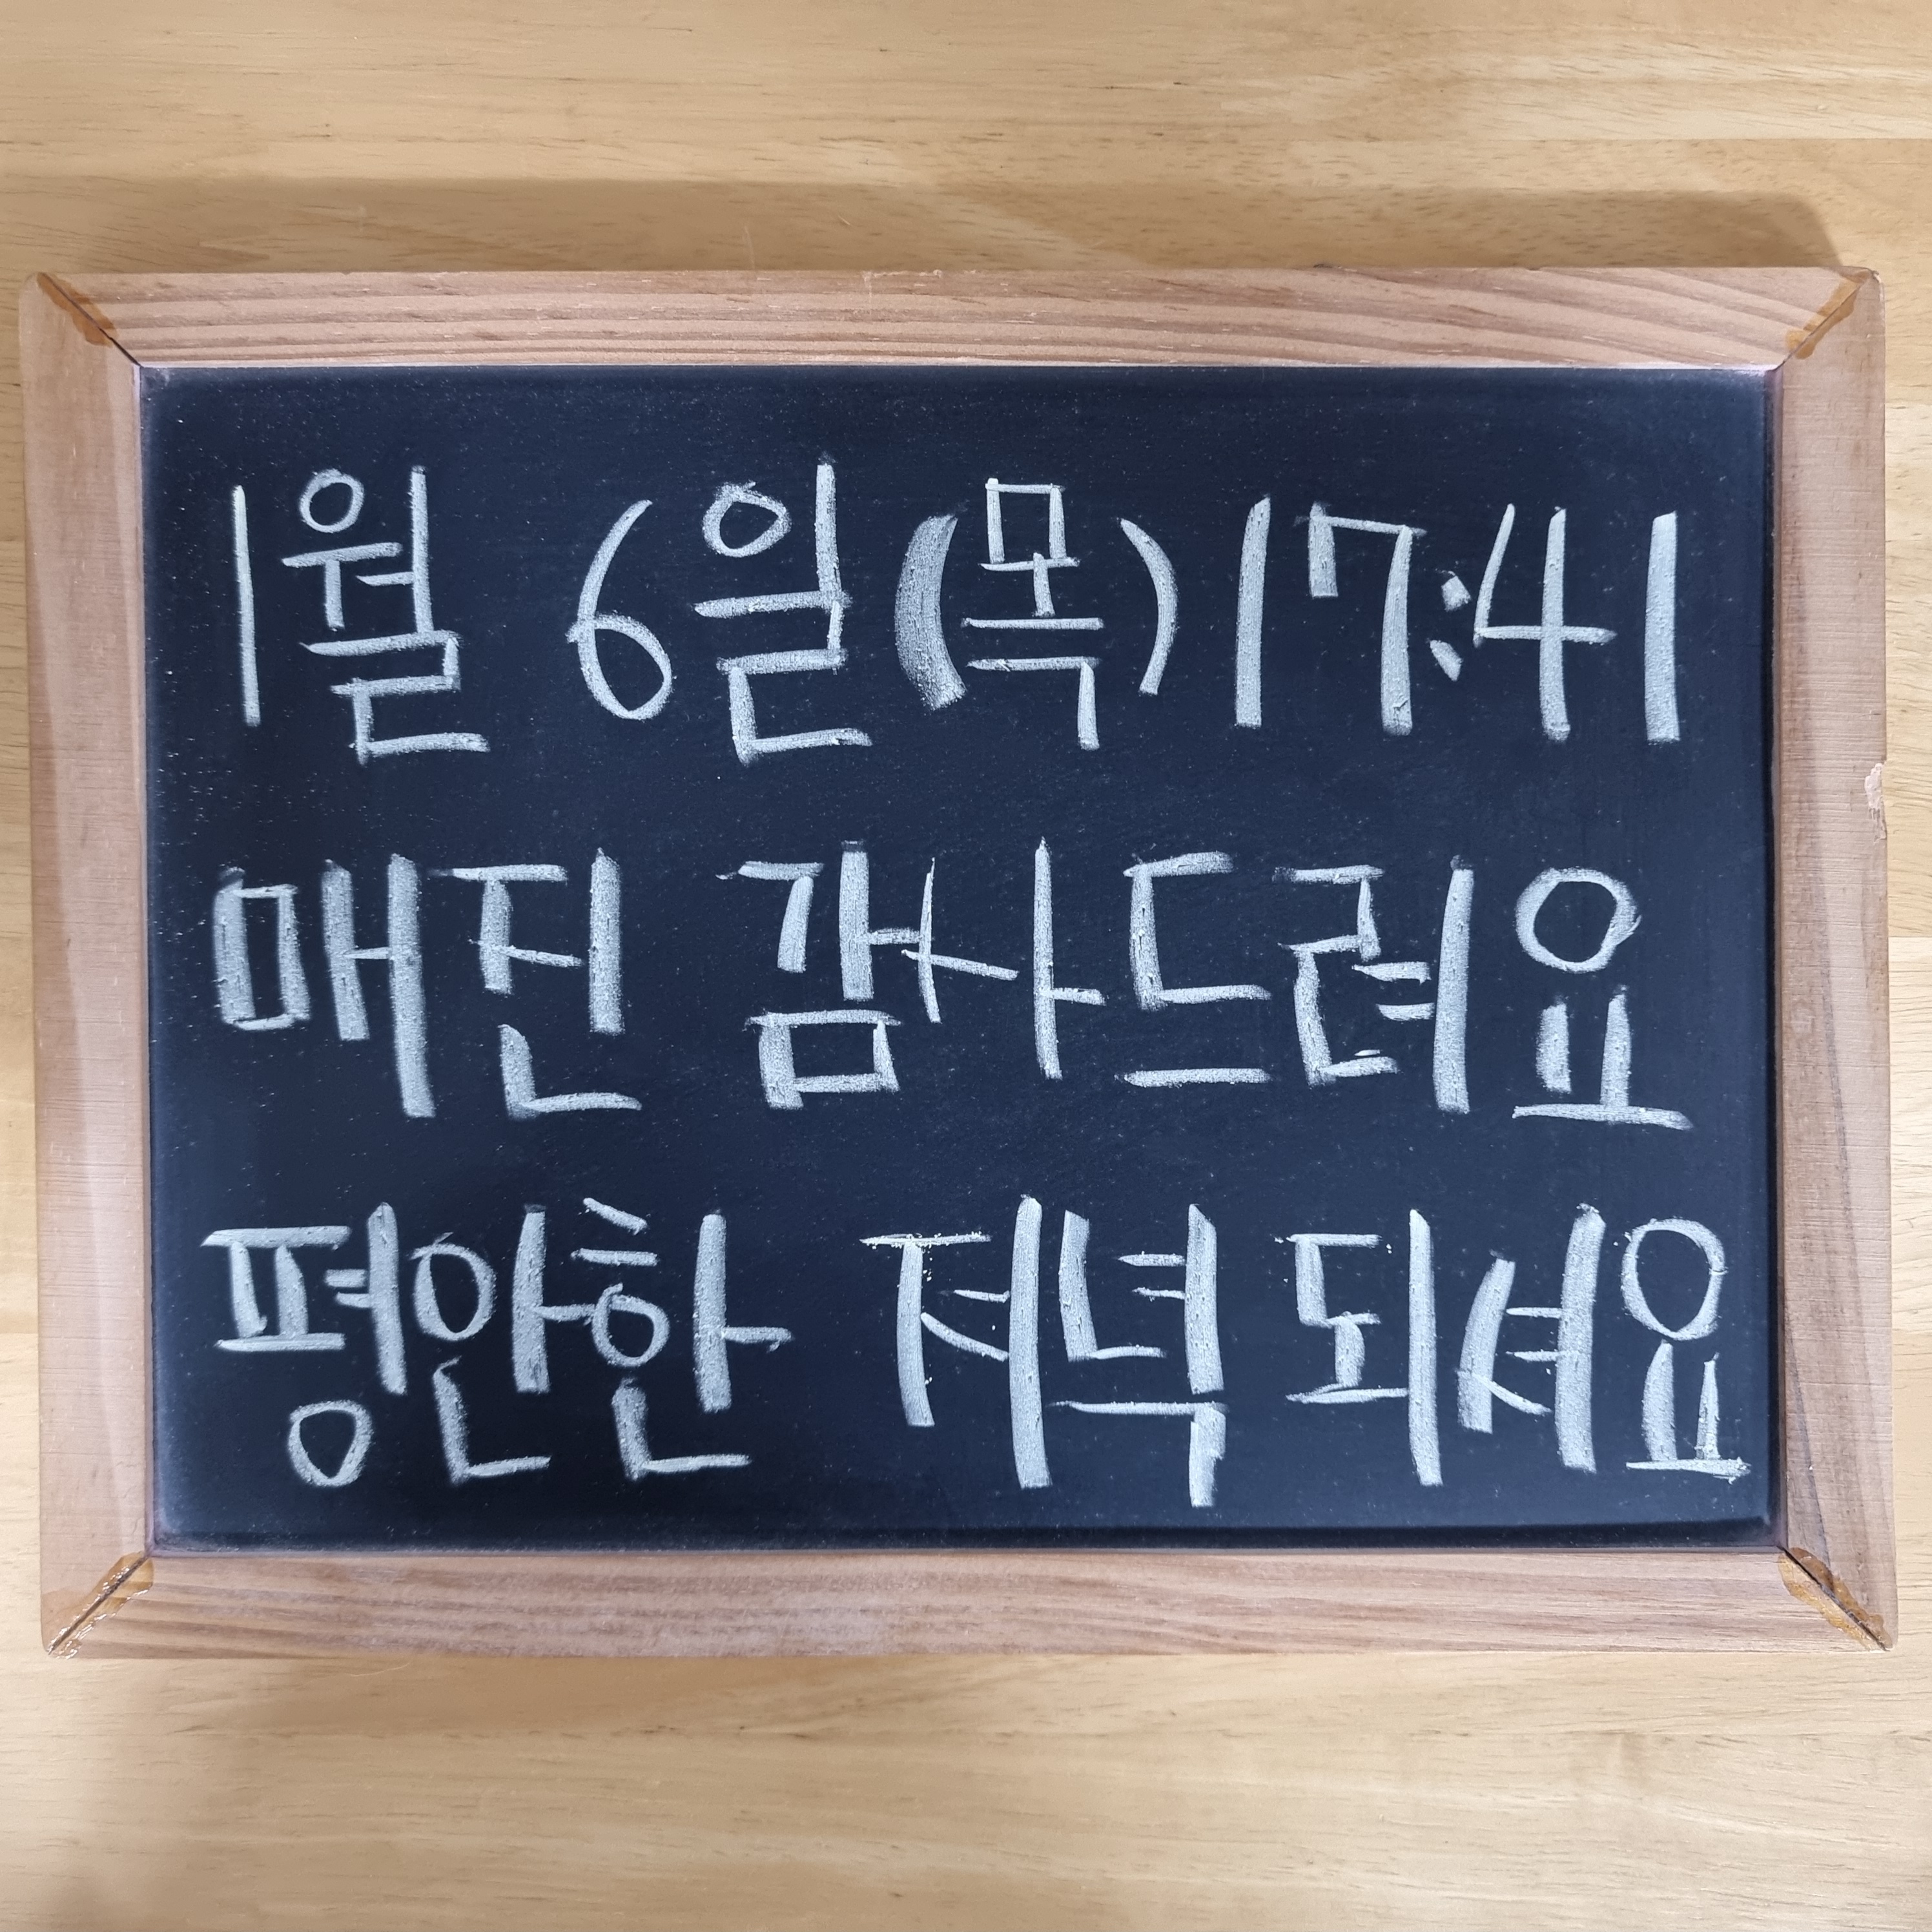 1월 6일(목)17:41
매진 감사드려요
평안한 저녁 되셔요